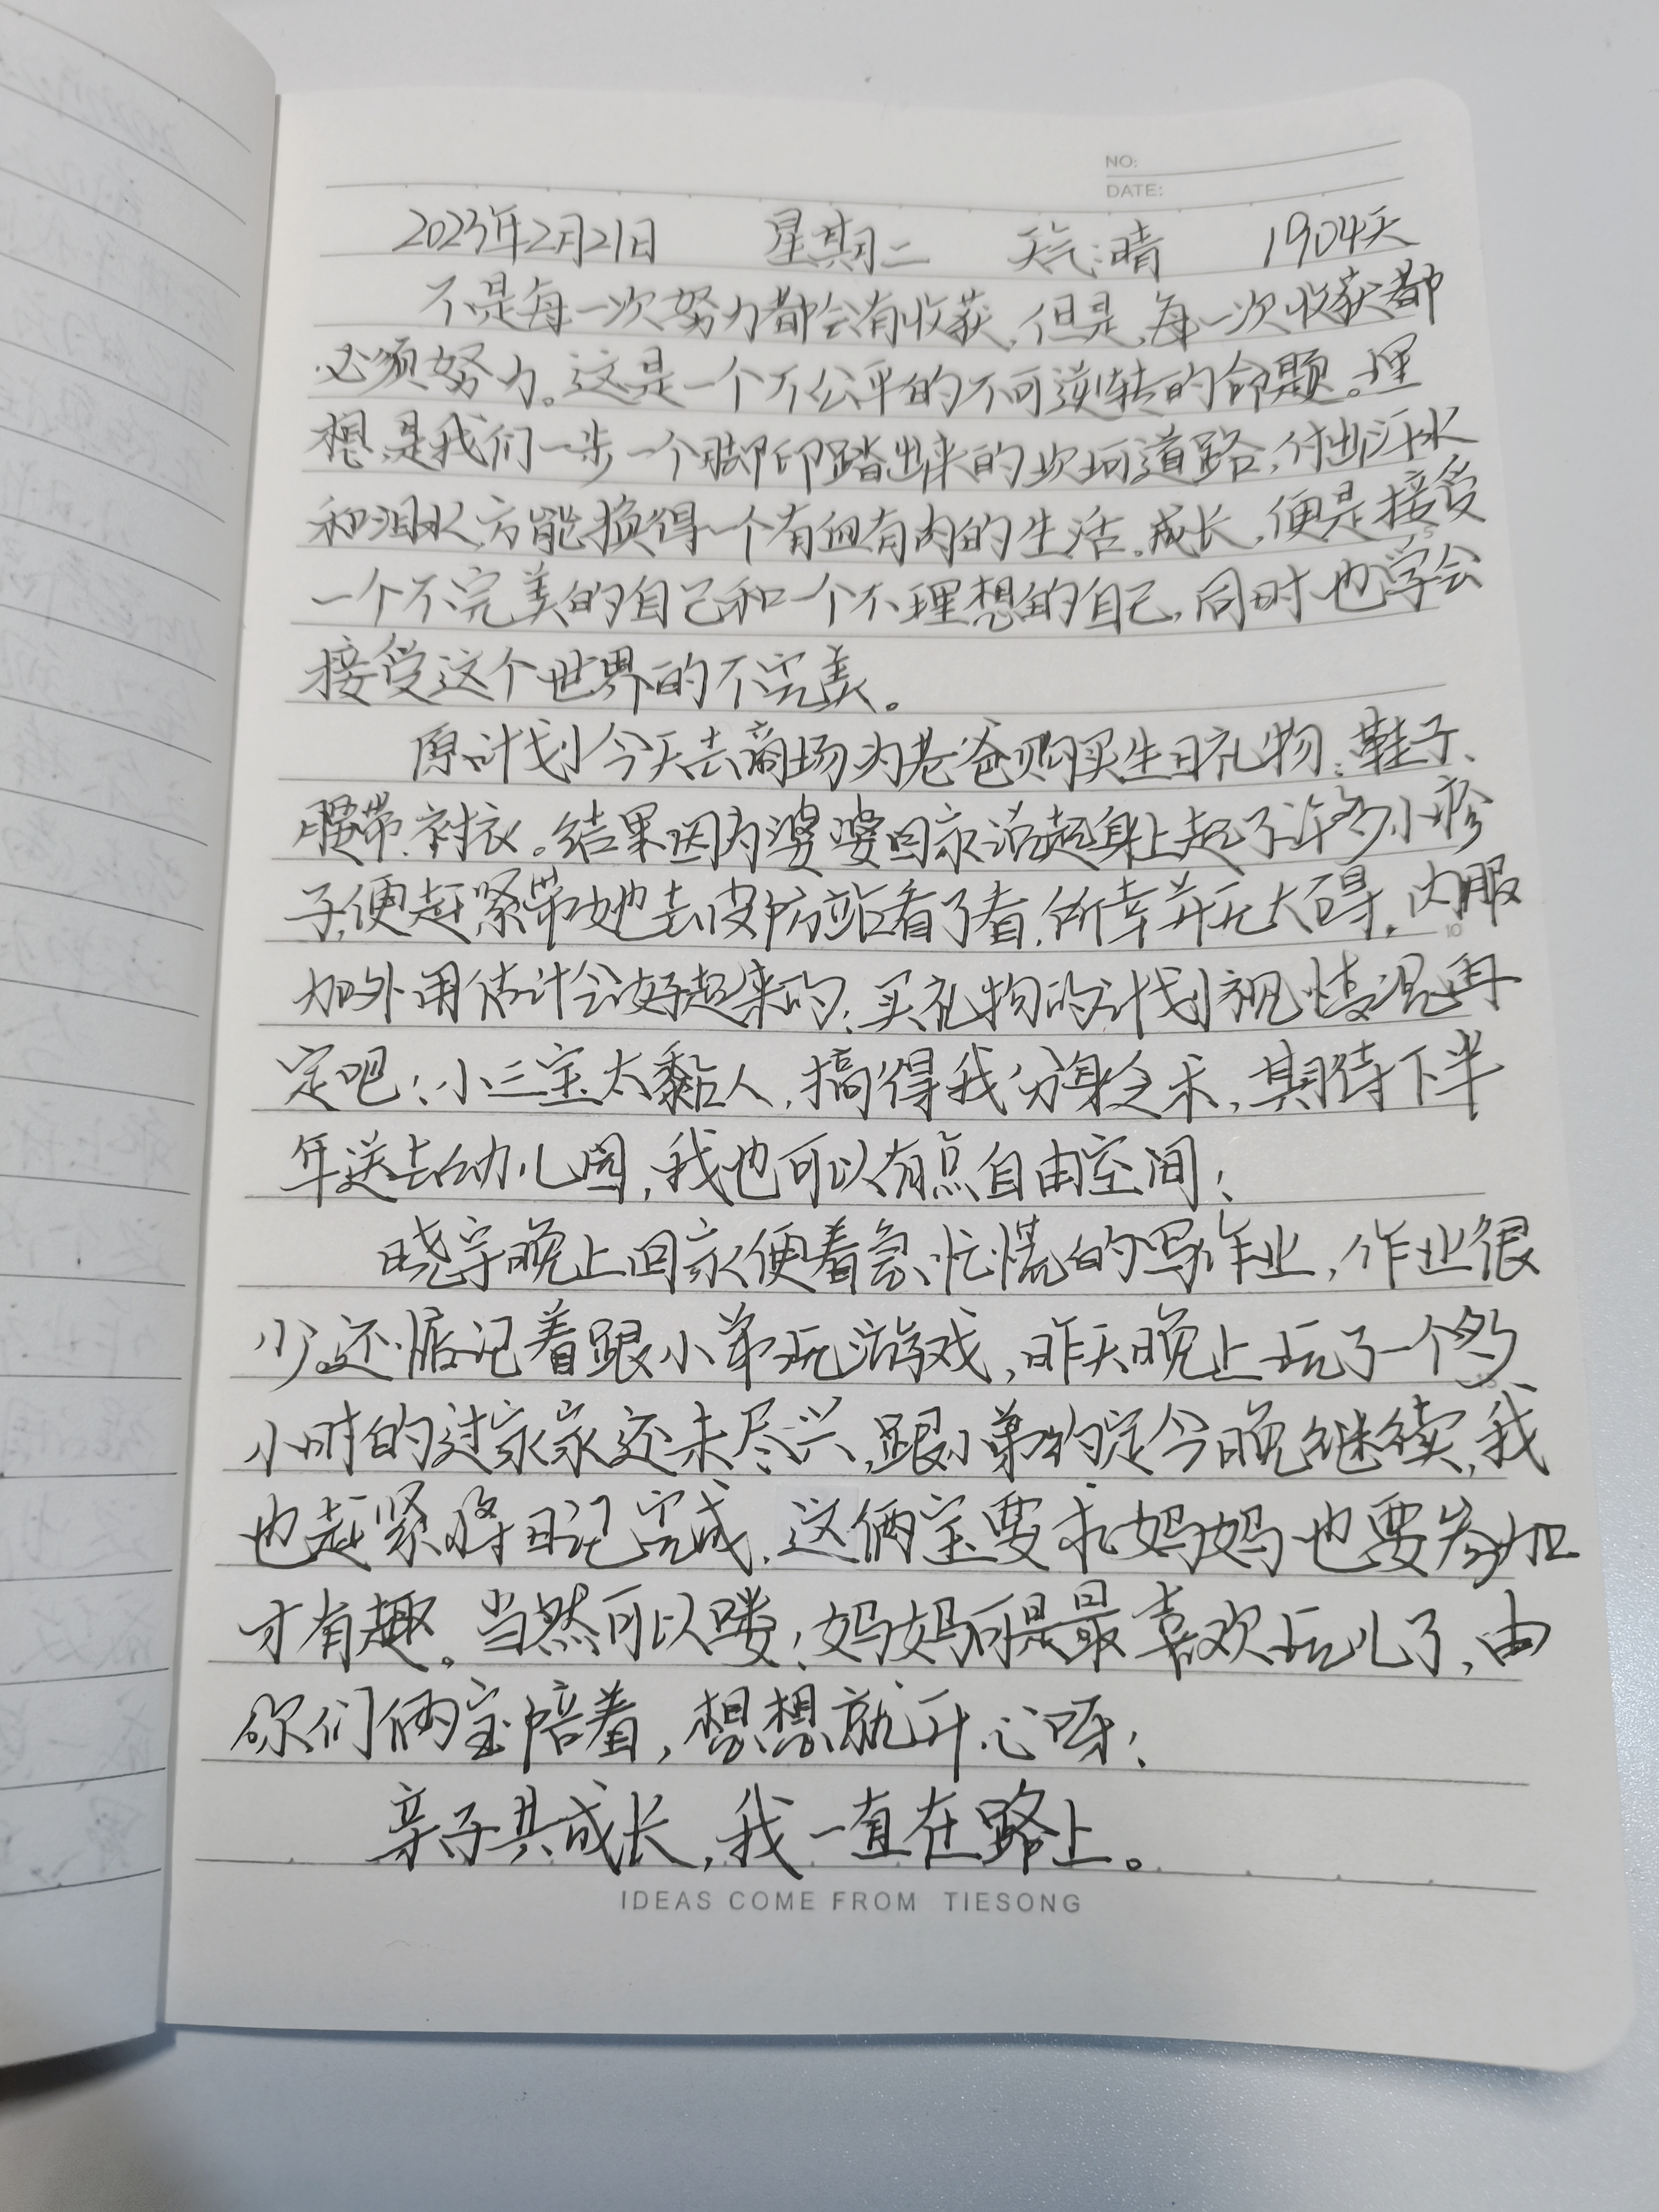 NO:
DATE:
2023年2月21日 星期二 天气:晴 1904天
不是每一次努力都会有收获,但是,每一次收获都
必须努力。这是一个不公平的不可逆转的命题。理
想,是我们一步一个脚印踏出来的坎坷道路,付出汗水
和泪水,方能换得一个有血有肉的生活。成长,便是接受
一个不完美的自己和一个不理想的自己,同时也学会
接受这个世界的不完美。
原计划今天去商场为老爸购买生日礼物:鞋子、
腰带、衬衣。结果因为婆婆回家说起身上起了许多小疹
子,便赶紧带她去皮防站看了看,所幸并无大碍,内服
加外用估计会好起来的;买礼物的计划视情况再
定吧!小三宝太黏人,搞得我分身乏术,期待下半
年送去幼儿园,我也可以有点自由空间!
晓宇晚上回家便着急忙慌的写作业,作业很
少。还惦记着跟小弟玩游戏,昨天晚上玩了一个多
小时的过家家还未尽兴,跟小弟约定今晚继续,我
也赶紧将日记完成,这俩宝要求妈妈也要参加
才有趣。当然可以喽!妈妈可是最喜欢玩儿了,由
你们俩宝陪着,想想就开心呀!
亲子共成长,我一直在路上。
10
IDEAS COME FROM TIESONG